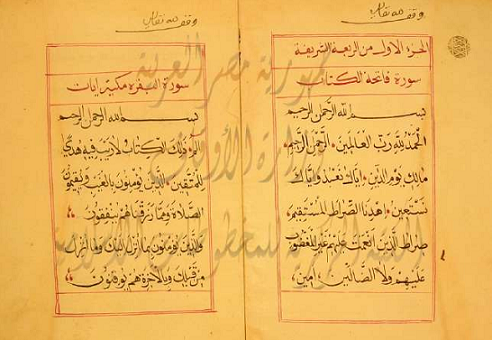 وقف لله تعالى
الجزء الاول من الربعة الشريفة
سورة فاتحة الكتاب
بسم الله الرحمن الرحيم
الحمد لله رب العالمين الرحمن الرحيم
مالك يوم الدين اياك نعبد واياك
نستعين اهدنا الصراط المستقيم
صراط الذين انعمت عليهم غير المغضوب
عليهم ولا الضالين امين
وقف لله تعالى
سورة البقرة ايات
بسم الله الرحمن الرحيم
الم ذلك الكتاب لا ريب فيه هدى
للمتقين الذين يومنون بالغيب ويقيمون
الصلاة ومما رزقناهم ينفقون
والذين يومنون بما انزل اليك وما انزل
من قبلك وبالاخرة هم يوقنون
جمهورية مصر العربية
وزارة الأوقاف